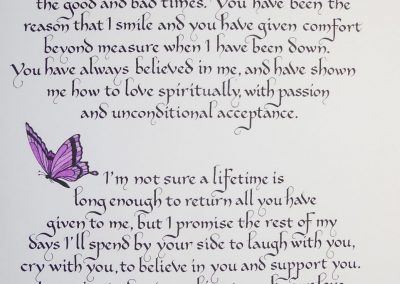 the good and bad times. You have been the
reason that I smile and you have given comfort
beyond measure when I have been down.
You have always believed in me, and have shown
me how to love spiritually, with passion
and unconditional acceptance.
I'm not sure a lifetime is
long enough to return all you have
given to me, but I promise the rest of my
days I'll spend by your side to laugh with you,
cry with you, to believe in you and support you.